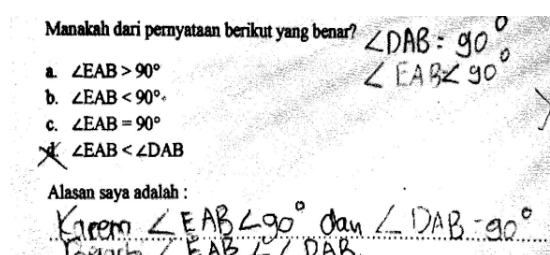 Manakah dari pernyataan berikut yang benar?
∠DAB = 90°
∠EAB < 90°
a. ∠EAB > 90°
b. ∠EAB < 90°.
c. ∠EAB = 90°
d. ∠EAB < ∠DAB
Alasan saya adalah :
Karena ∠EAB < 90° dan ∠DAB = 90°
∠EAB < ∠DAB